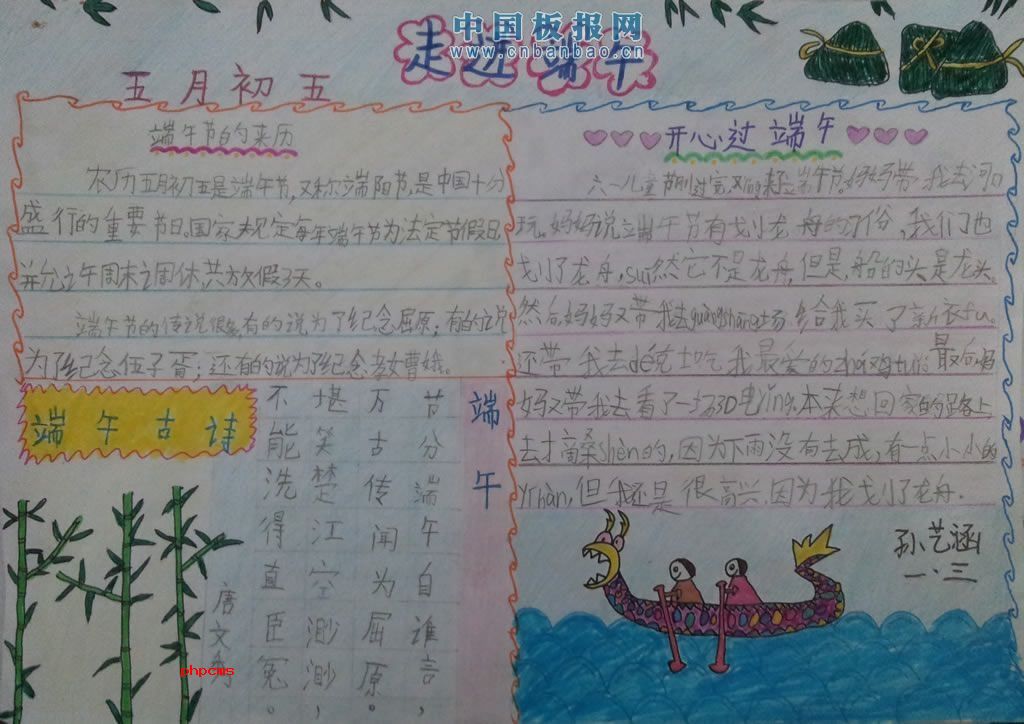 中国板报网
www.cnbanbao.cn
走进端午
五月初五
端午节的来历
农历五月初五是端午节,又称端阳节,是中国十分
盛行的重要节日。国家规定每年端午节为法定节假日
并允之午周末之周休,共放假3天。
端午节的传说很多,有的说为了纪念屈原;有的说
为了纪念伍子胥;还有的说为了纪念孝女曹娥。
端午古诗
端午
唐文秀
节分端午自谁言,
万古传闻为屈原。
堪笑楚江空渺渺,
不能洗得直臣冤。
开心过端午
六一儿童节刚过完又迎来端午节,妈妈带我去河口
玩。妈妈说端午节有戈小龙舟的习俗,我们也
戈小了龙舟,sui然它不是龙舟,但是,船的头是龙头,
然后妈妈又带我去guangchang场给我买了新衣fu。
还带我去dé克士吃我最爱的zhá鸡tuǐ。最后妈
妈又带我去看了一场3D电yǐng。本来想回家的路上
去才商桑shèn的,因为下雨没有去成,有一点小小的
yí hàn,但我还是很高兴,因为我戈小了龙舟.
孙艺涵
一.三
phpcms